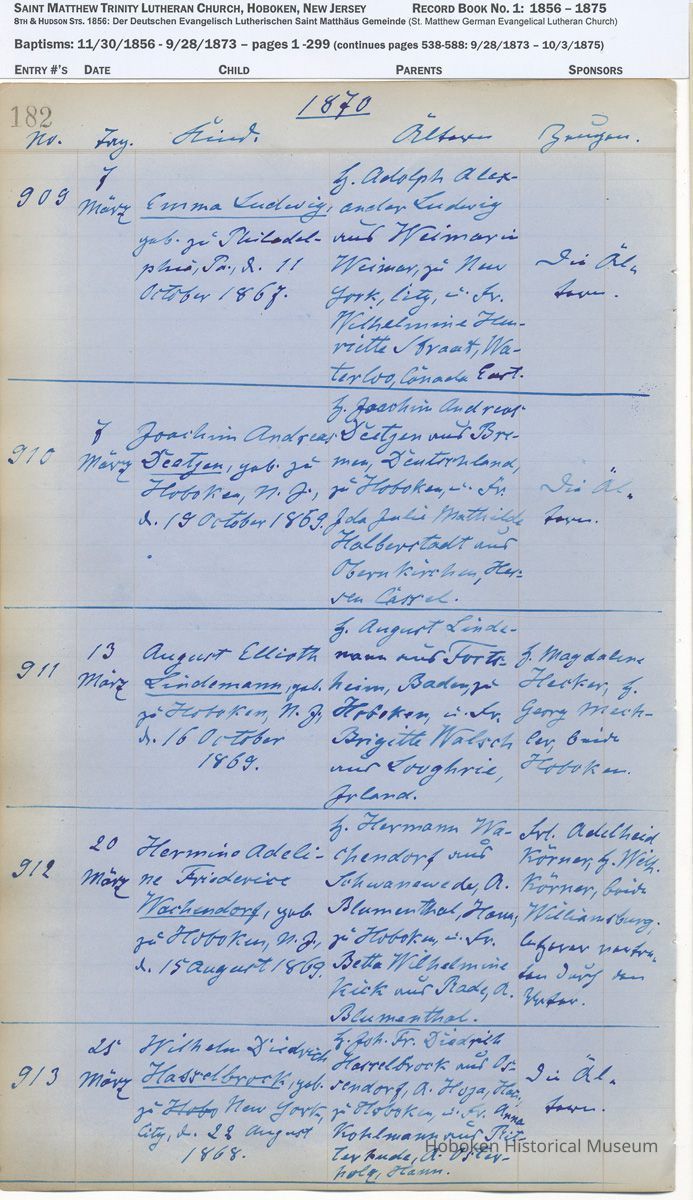 SAINT MATTHEW TRINITY LUTHERAN CHURCH, HOBOKEN, NEW JERSEY RECORD BOOK NO. 1: 1856 – 1875
8TH & HUDSON STS. 1856: Der Deutschen Evangelisch Lutherischen Saint Matthäus Gemeinde (St. Matthew German Evangelical Lutheran Church)
Baptisms: 11/30/1856 - 9/28/1873 – pages 1 -299 (continues pages 538-588: 9/28/1873 – 10/3/1875)
ENTRY #'S DATE CHILD PARENTS SPONSORS
182
1870
No. Tag. Kind. Ältern Zeugen.
909
7
März
Emma Ludwig,
geb. zu Philadel-
phia, Pa., d. 11
October 1867.
H. Adolph Alex-
ander Ludwig
aus Weimar in
Weimar, zu New
York, City, u. Fr.
Wilhelmine Hen-
riette Straat, Wa-
terloo, Canada East.
Die Äl-
tern.
910
7
März
Joachim Andreas
Deetjen, geb. zu
Hoboken, N. J.,
d. 19 October 1869.
H. Joachim Andreas
Deetjen aus Bre-
men, Deutschland,
zu Hoboken, u. Fr.
Ida Julie Mathilde
Halberstadt aus
Obernkirchen, Hes-
sen Cassel.
Die Äl-
tern.
911
13
März
August Ellioth
Lindemann, geb.
zu Hoboken, N. J.,
d. 16 October
1869.
H. August Linde-
mann aus Forts-
heim, Baden, zu
Hoboken, u. Fr.
Brigitte Walsch
aus Looghrie,
Irland.
H. Magdalene
Hecker, H.
Georg Mech-
ler, beide
Hoboken.
912
20
März
Hermine Adeli-
ne Friederice
Wachendorf, geb.
zu Hoboken, N. J.,
d. 15 August 1869.
H. Hermann Wa-
chendorf aus
Schwanewede, A.
Blumenthal, Hann,
zu Hoboken, u. Fr.
Betta Wilhelmine
Kick aus Rade, A.
Blumenthal.
Frl. Adelheid
Körner, H. Wilh.
Körner, beide
Williamsburg,
letzerer vertre-
ten durch den
Vater.
913
25
März
Wilhelm Diedrich
Hasselbrock, geb.
zu Hobo New York,
City, d. 22 August
1868.
H. Joh. Fr. Diedrich
Hasselbrock aus
sendorf, A. Hoya, Han.,
zu Hoboken, u. Fr. Anna
Kohlmann aus
terhude, A. Oster-
holz, Hann.
Die Äl-
tern.
Hoboken Historical Museum